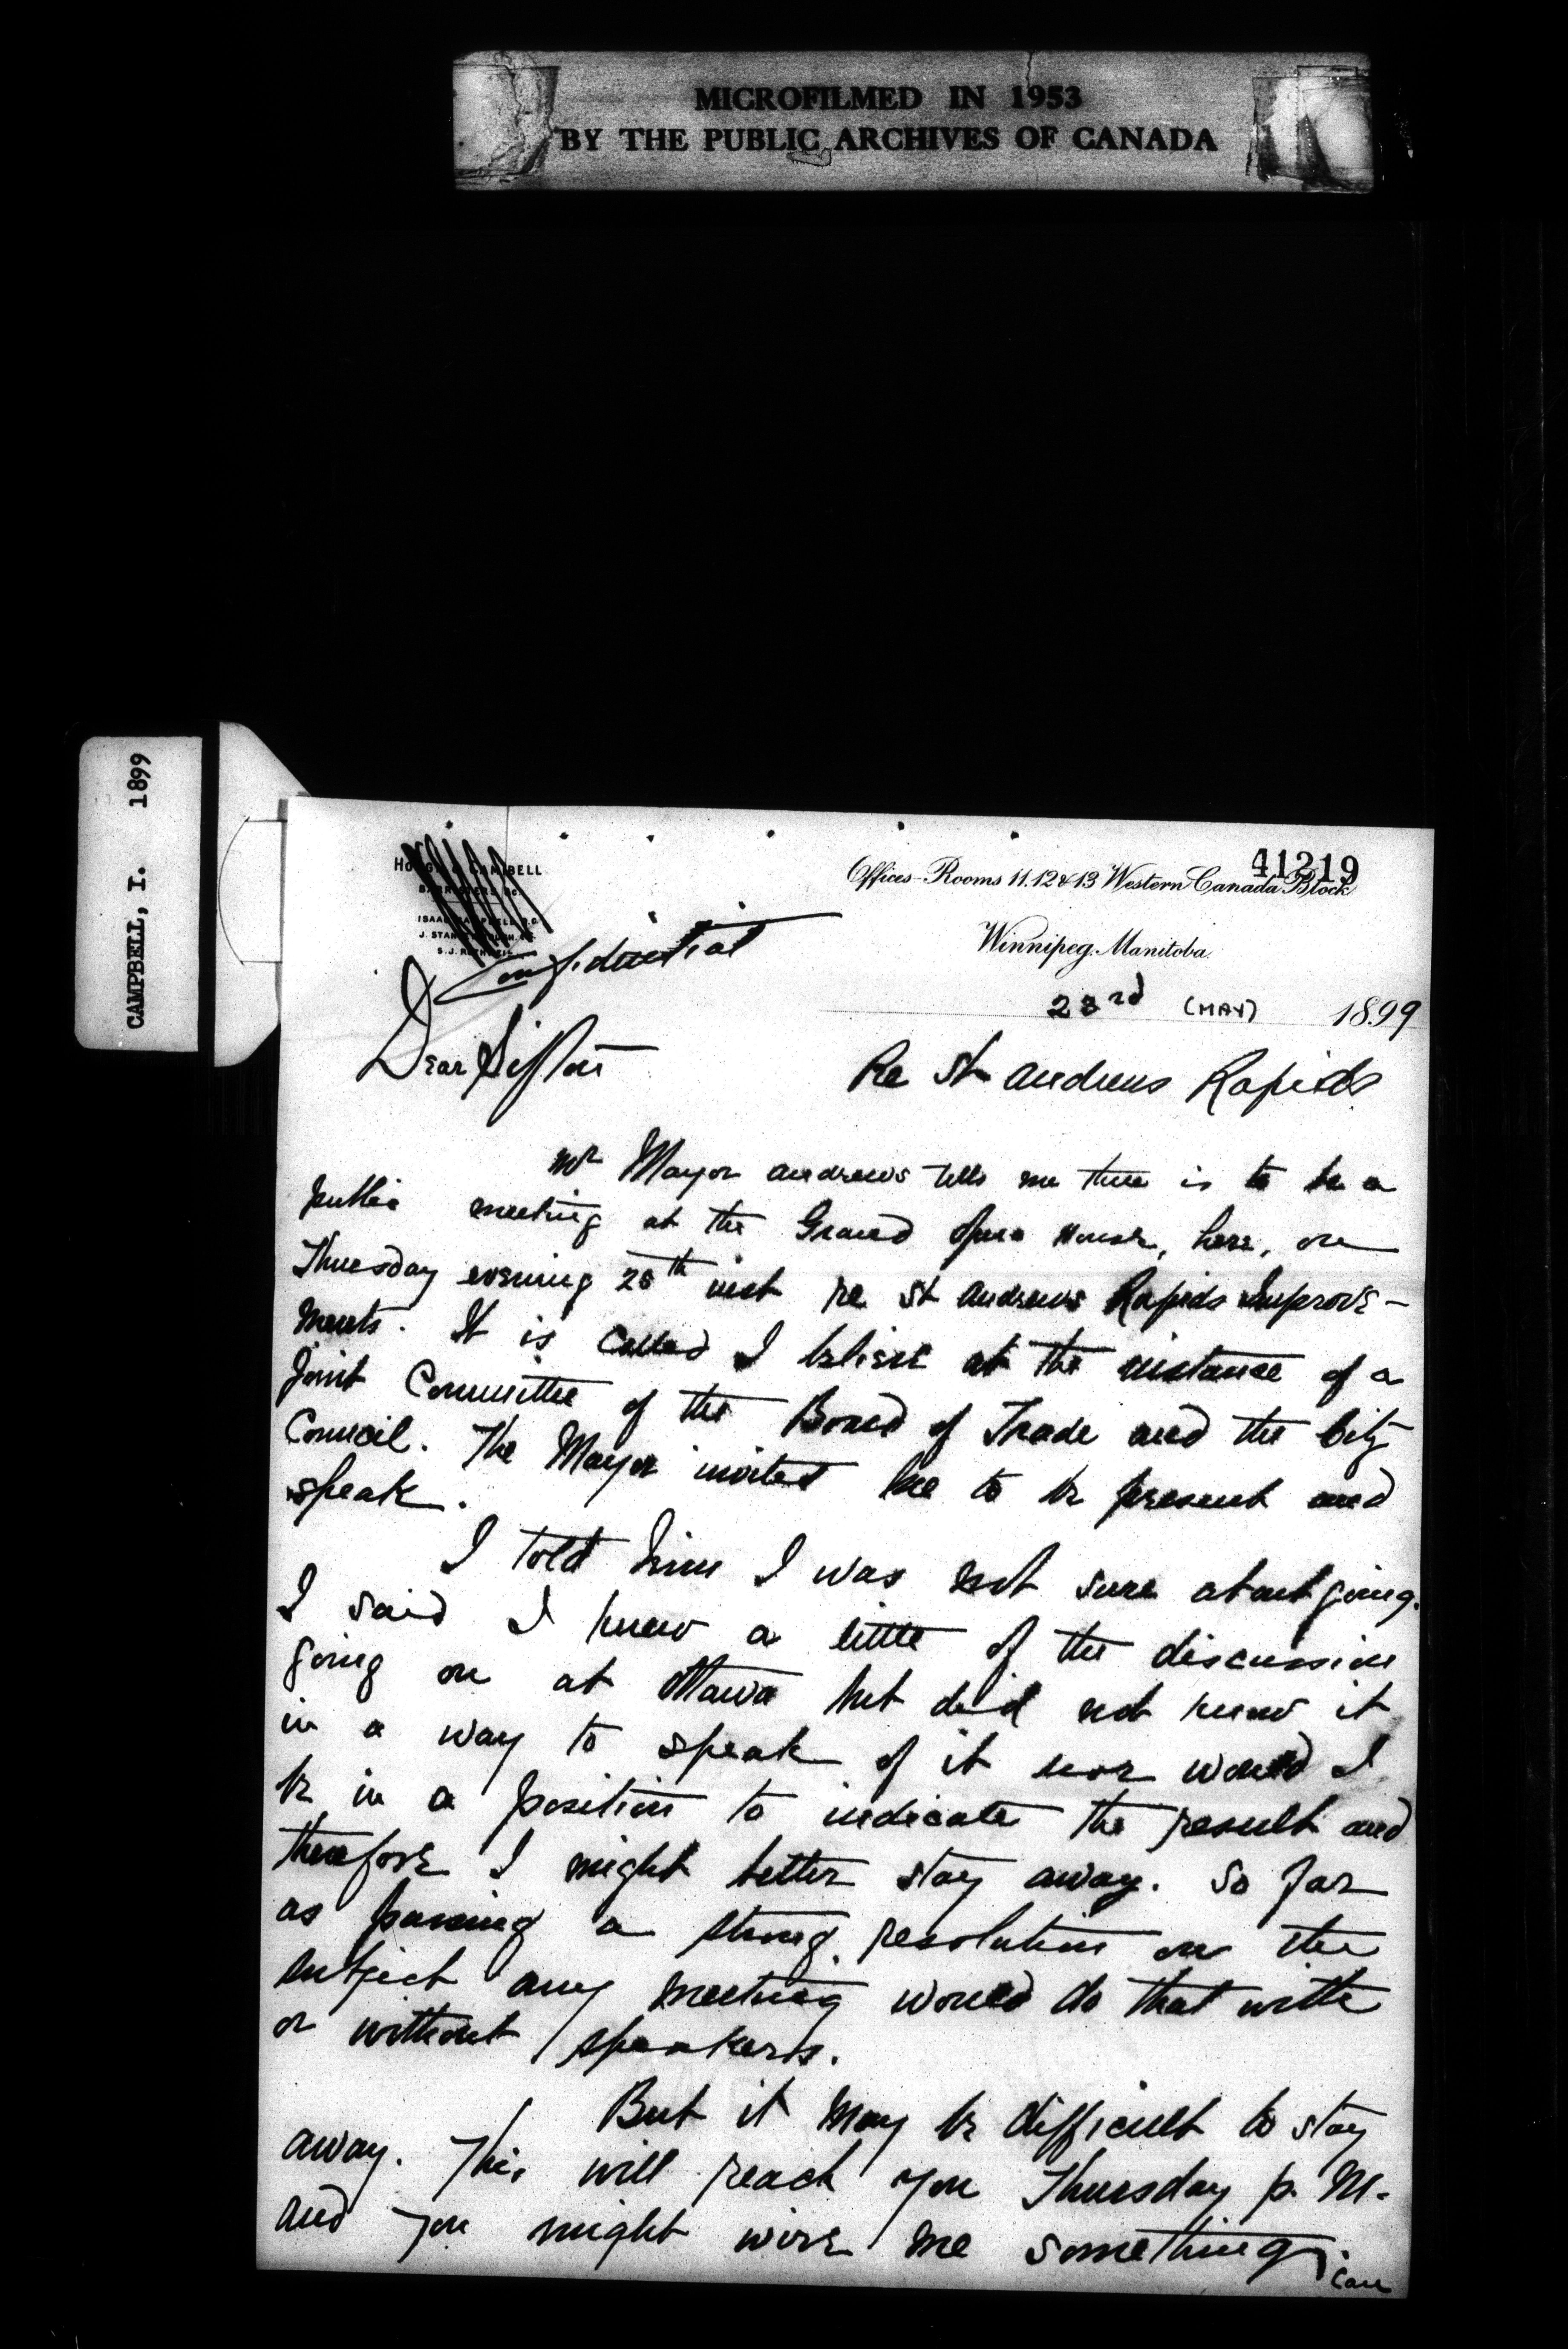 MICROFILMED IN 1953
BY THE PUBLIC ARCHIVES OF CANADA
CAMPBELL, I. 1899
41219
CAMPBELL
Offices-Rooms 11.12&13 Western Canada Block
Winnipeg. Manitoba.
Confidential
23rd (MAY) 1899
Dear Sifton
Re St Andrews Rapids
Mr Mayor Andrews tells me there is to be a
public meeting at the Grand Opera House, here, on
Thursday evening 25th inst re St Andrews Rapids Improve-
ments. It is called I believe at the instance of a
joint Committee of the Board of Trade and the City
Council. The Mayor invited me to be present and
speak.
I told him I was not sure about going.
I said I knew a little of the discussion
going on at Ottawa but did not know it
in a way to speak of it nor would I
be in a position to indicate the result and
therefore I might better stay away. So far
as passing a strong resolution on the
subject any meeting would do that with
or without speakers.
But it may be difficult to stay
away. This will reach you Thursday p.m.
and you might wire me something.